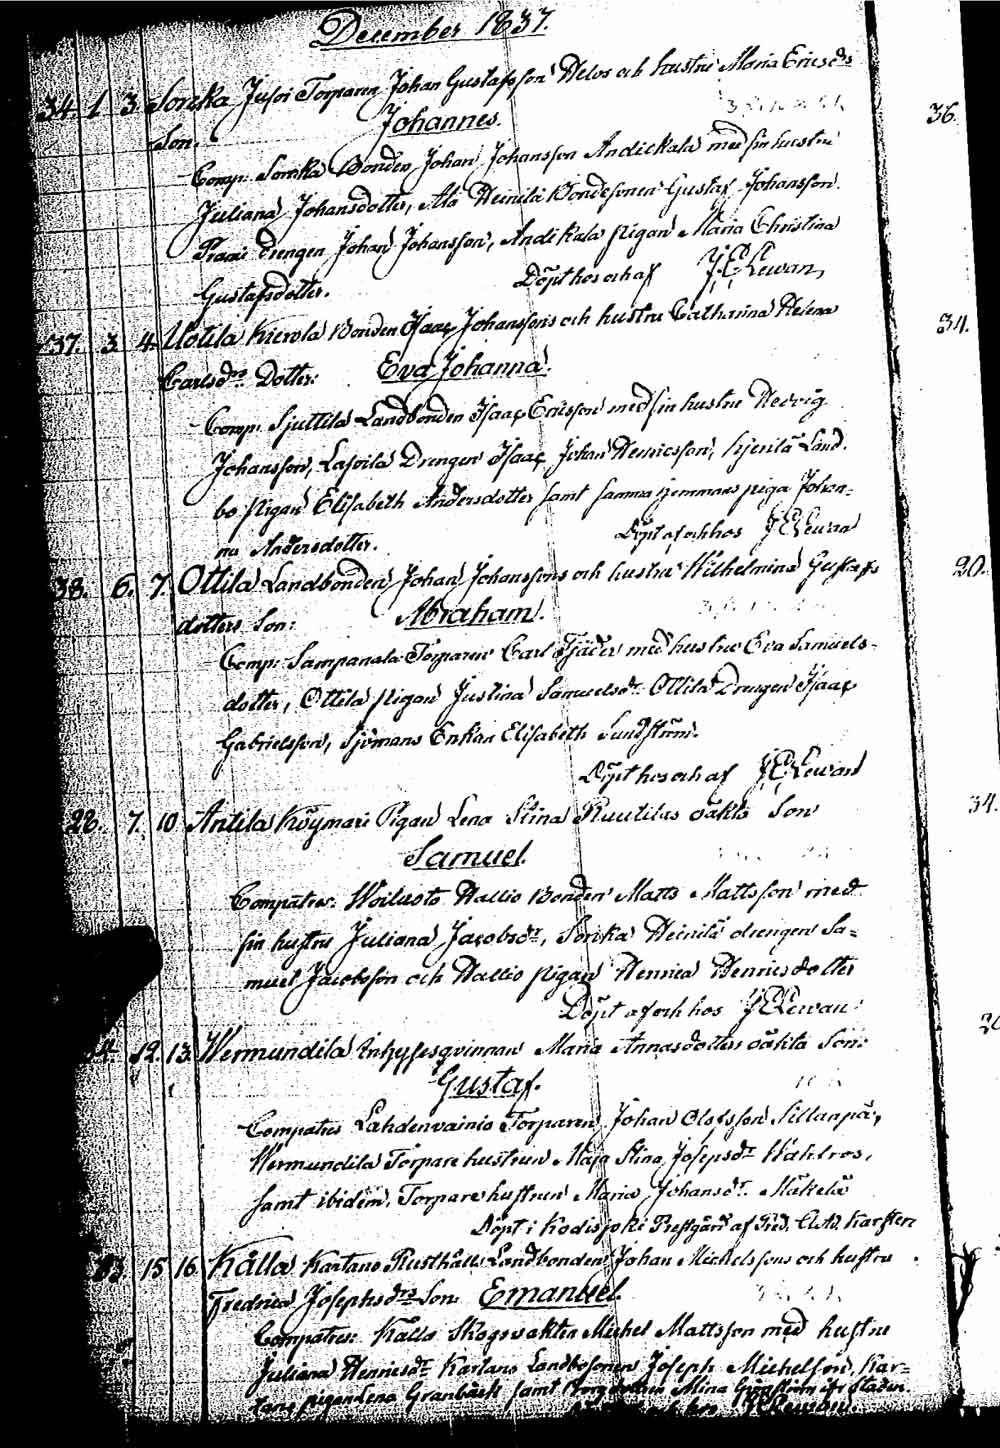 December 1837.
34. 1 3 Sorrka Torparen Johan Gustafsson Welos och hustru Maria Ericsdrs
Son. Johannes. 36.
Comp: Sorrka Bonden Johan Johansson Andickala med sin hustru
Juliana Johansdotter, Ala Heinilä Bondesonen Gustaf Johansson
Drengen Johan Johansson, Andikala Pigan Maria Christina
Gustafsdotter. Döpt hos och af Lewan
37. 3 4 Uotila Bonden Isaac Johanssons och hustru Catharina Helena 34.
Carlsdrs Dotter: Eva Johanna.
Comp: Sjuttila Landbonden Isaac Ericsson med sin hustru Hedvig
Johansson, Drengen Isaac Johan Henricsson, Land-
bo Pigan Elisabeth Andersdotter samt samma hemmans piga Johan-
na Andersdotter. Döpt af och hos Lewan
38. 6. 7. Ottila Landbonden Johan Johanssons och hustru Wilhelmina Gustafs- 20.
dotters Son: Abraham.
Comp: Sampanala Torparen Carl Tjäder med hustru Eva Samuels-
dotter, Ottila Pigan Justina Samuelsdr Ottila Drengen Isaac
Gabrielsson, Sjömans Enkan Elisabeth Sundström.
Döpt hos och af Lewan
22. 7. 10 Antila Köymari Pigan Lena Stina Ruutilas oäkta Son 34.
Samuel.
Compatres: Woiluoto Wallio Bonden Matts Mattsson med
sin hustru Juliana Jacobsdr, Sorrka Heinilä drengen Sa-
muel Jacobsson och Wallio pigan Henrica Henricsdotter
Döpt af och hos Lewan
12. 13. Wermundila Inhysesqvinnan Maria Annasdotters oäkta Son:
Gustaf.
Compatres Lahdenvainio Torparen Johan Olofsson Sillanpä,
Wermundila Torpare hustrun Maja Stina Josepsdr Wahlros,
samt ibidem, Torpare hustrun Maria Johansdr Mäkelä
Döpt i Kodisjoki Prestgård af Karsten
23. 15 16. Kålla Kartano Rusthålls Landbonden Johan Michelssons och hustru
Fredrica Josephsdrs Son: Emanuel.
Compatres: Kålla Skogsvakten Michel Mattsson med hustru
Juliana Henricsdr Kartano Landbosonen Joseph Michelsson, Kar-
tano pigan Lena Granbäck samt Mina Grönström ifr staden
Lewan